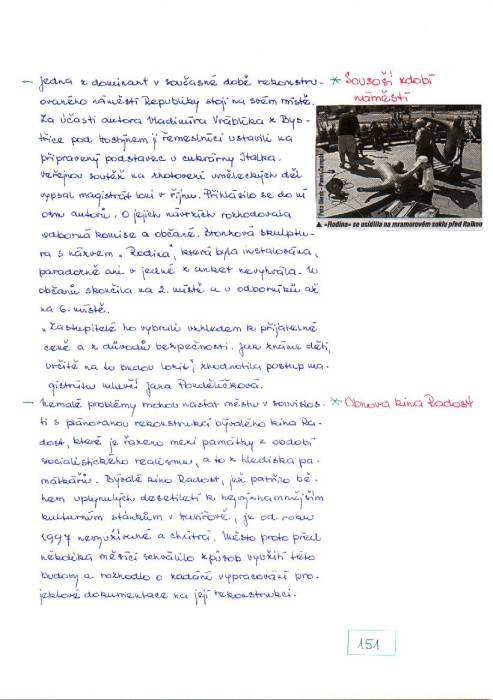 - Jedna z dominant v současné době rekonstru-
ovaného náměstí Republiky stojí na svém místě.
Za účasti autora Vladimíra Vrábníka z Bys-
třice pod Hostýnem ji řemeslníci ustavili na
připravený podstavec u cukrárny Italka.
Veřejnou soutěž na zhotovení uměleckých děl
vypsal magistrát loni v říjnu. Přihlásilo se do ní
osm autorů. O jejich návrzích rozhodovala
odborná komise a občané. Bronzová skulptu-
ra s názvem "Rodina", která byla instalována,
paradoxně ani v jedné z anket nevyhrála. U
občanů skončila na 2. místě a u odborníků až
na 6. místě.
"Zastupitelé ho vybrali vzhledem k přijatelné
ceně a z důvodů bezpečnosti. Jak známe děti,
určitě na to budou lozit", zhodnotila postup ma-
gistrátu mluvčí Jana
- Nemalé problémy mohou nastat městu v souvislos-
ti s plánovanou rekonstrukcí bývalého kina Ra-
dost, které je řazeno mezi památky z období
socialistického realismu, a to z hlediska pa-
mátkářů. Bývalé kino Radost, jež patřilo bě-
hem uplynulých desetiletí k nejvýznamnějším
kulturním stánkům v Havířově, je od roku
1997 nevyužívané a chátrá. Město proto před
několika měsíci schválilo způsob využití této
budovy a rozhodlo o zadání vypracování pro-
jektové dokumentace na její rekonstrukci.
* Sousoší zdobí
náměstí
▲ »Rodina« se usídlila na mramorovém soklu před Italkou
* Obnova kina Radost
151